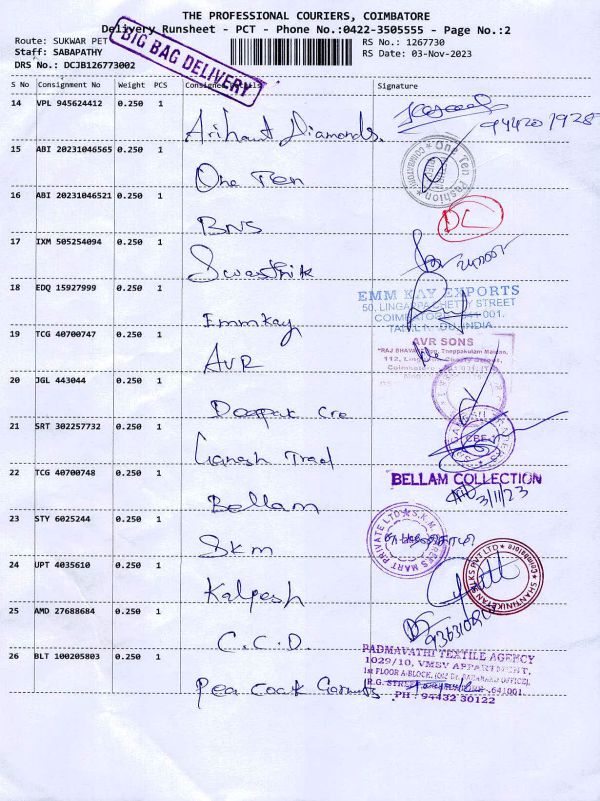 THE PROFESSIONAL COURIERS, COIMBATORE
Delivery Runsheet - PCT - Phone No.:0422-3505555 - Page No.:2
Route: SUKWAR PET
RS No.: 1267730
Staff: SABAPATHY
RS Date: 03-Nov-2023
DRS No.: DCJB126773002
BIG BAG DELIVERY
S No Consignment No Weight PCS Consignee Details Signature
14 VPL 945624412 0.250 1 Arihant Diamonds.
15 ABI 20231046565 0.250 1 One Ten
One Ten Fashion
COIMBATORE
16 ABI 20231046521 0.250 1 BNS DC
17 IXM 505254094 0.250 1 Swasthik
18 EDQ 15927999 0.250 1 Emmkay
EMM KAY EXPORTS
50, LINGAPPA CHETTY STREET
COIMBATORE - 641 001.
TAMIL NADU, INDIA
19 TCG 40700747 0.250 1 AVR
AVR SONS
"RAJ BHAWAN" Thoppakulam Maidan,
112,
20 JGL 443044 0.250 1 Deepak Cre
21 SRT 302257732 0.250 1 Ganesh Trad
22 TCG 40700748 0.250 1 Bellam
BELLAM COLLECTION
3/11/23
23 STY 6025244 0.250 1 SKM
24 UPT 4035610 0.250 1 Kalpesh
SHANTINIKETAN SILKS PVT LTD
25 AMD 27688684 0.250 1 C.C.D.
26 BLT 100205803 0.250 1 Pea Coak Garments
PADMAVATHI TEXTILE AGENCY
1029/10, VMSV APPARTMENT,
1st FLOOR A-BLOCK,
R.G. STREET 641001.
PH : 94432 30122